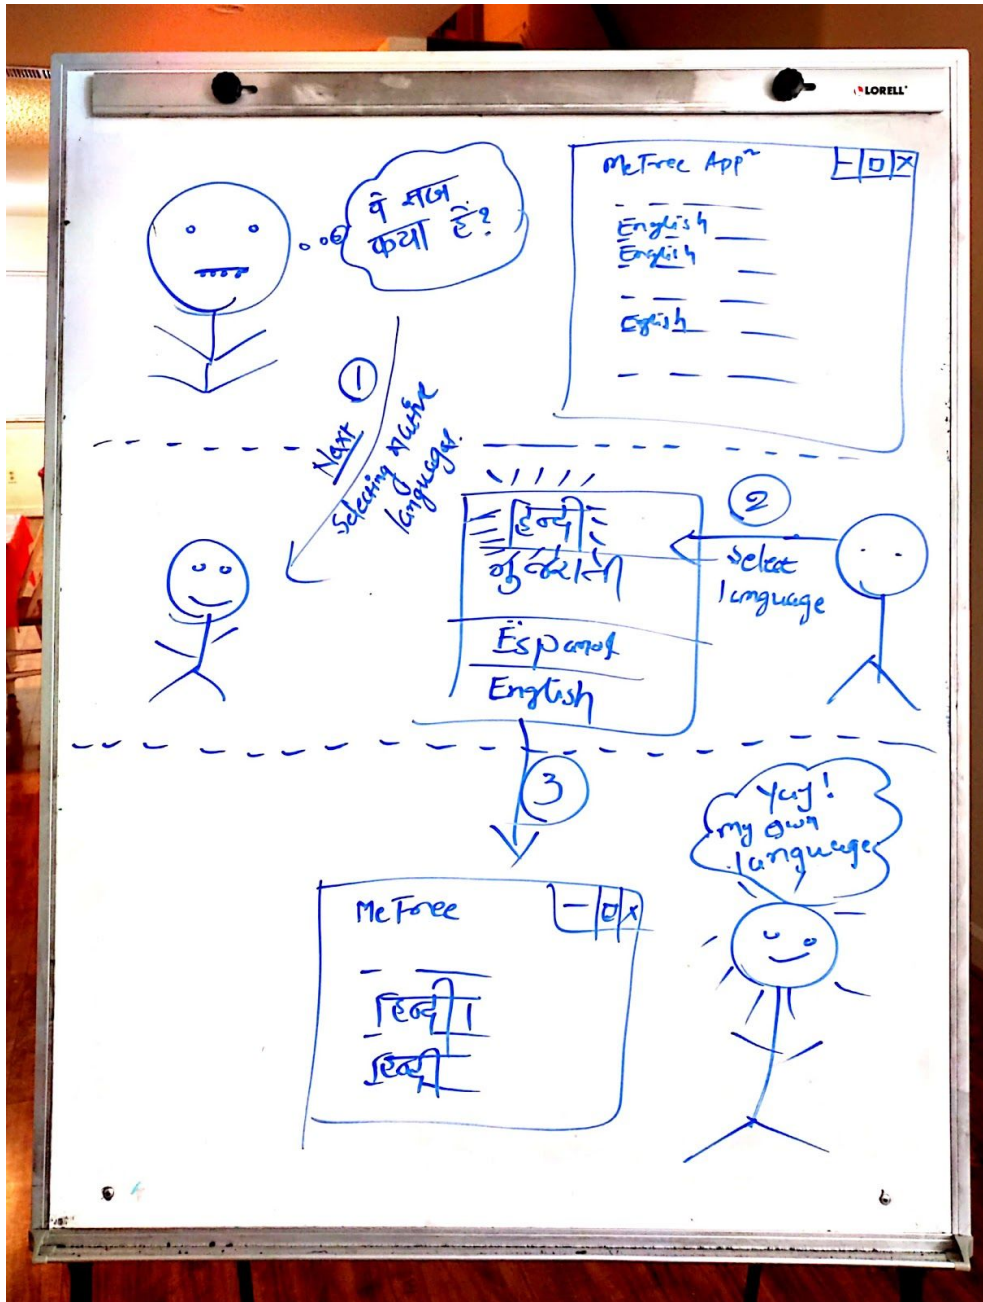 LORELL
ये सब
क्या है?
MeTree App~
English
English
Eglish
1
Next
Selecting native
languages.
2
Select
language
हिन्दी
ગુજરાતી
Espanol
English
3
Yay!
my own
language
MeTree
हिन्दी
हिन्दी